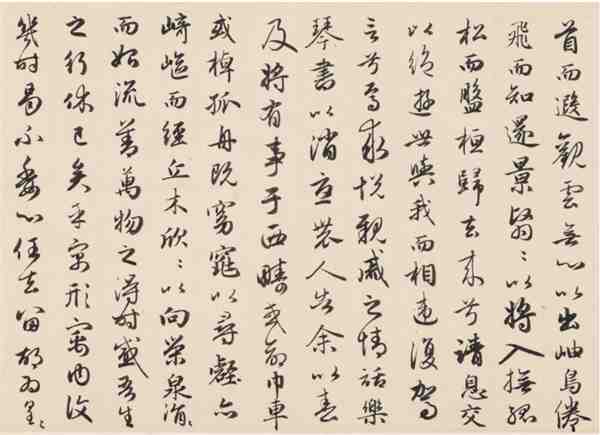 首而遐觀雲無心以出岫鳥倦
飛而知還景翳〻以將入撫孤
松而盤桓歸去來兮請息交
以絕遊世與我而相違復駕
言兮焉求悅親戚之情話樂
琴書以消憂農人告余以春
及將有事于西疇或命巾車
或棹孤舟既窈窕以尋壑亦
崎嶇而經丘木欣〻以向榮泉涓〻
而始流善萬物之得時感吾生
之行休已矣乎寓形宇內復
幾時曷不委心任去留胡為遑〻